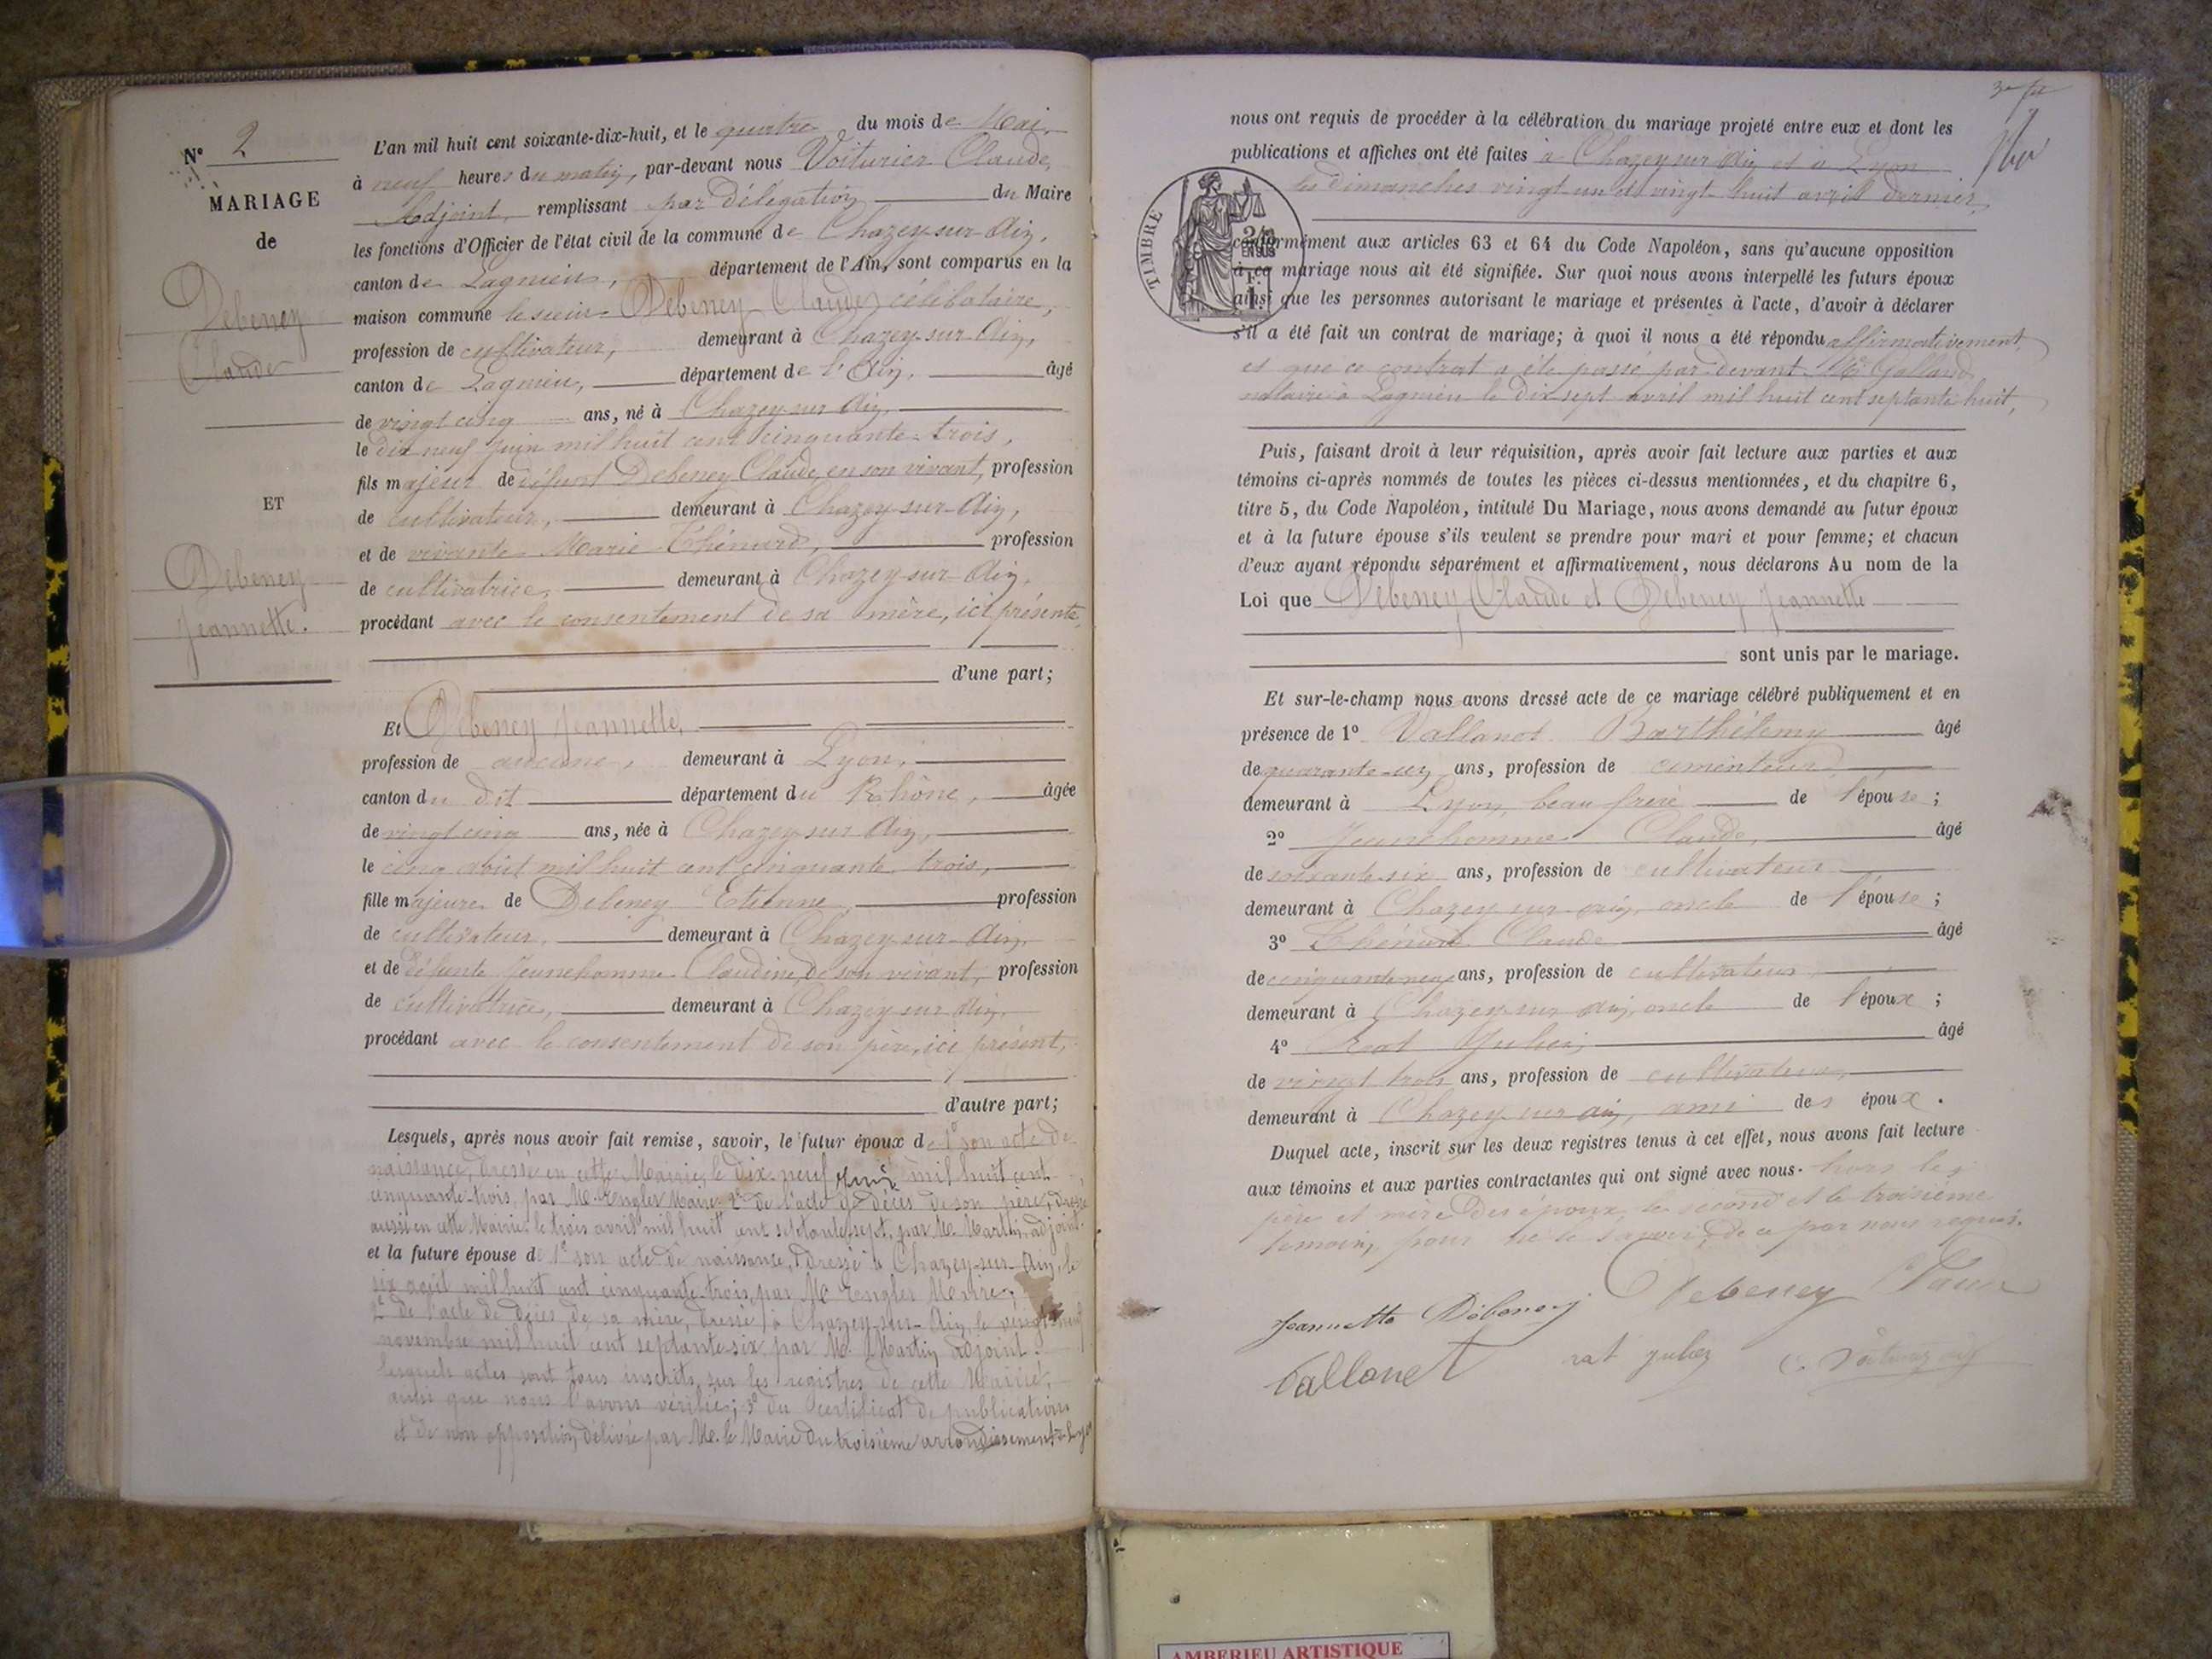 N° 2
MARIAGE
de
Debeney
Claude
ET
Debeney
Jeannette.
L'an mil huit cent soixante-dix-huit, et le quatre du mois de Mai,
à neuf heures du matin, par-devant nous Voiturier Claude,
Adjoint, remplissant par Délégation du Maire
les fonctions d'Officier de l'état civil de la commune de Chazey-sur-Ain,
canton de Lagnieu, département de l'Ain, sont comparus en la
maison commune le sieur Debeney Claude, célibataire,
profession de cultivateur, demeurant à Chazey-sur-Ain,
canton de Lagnieu, département de l'Ain, âgé
de vingt cinq ans, né à Chazey-sur-Ain,
le dix neuf juin mil huit cent cinquante-trois,
fils majeur de défunt Debeney Claude, en son vivant, profession
de cultivateur, demeurant à Chazey-sur-Ain,
et de vivante Marie Thénard, profession
de cultivatrice, demeurant à Chazey-sur-Ain,
procédant avec le consentement de sa mère, ici présente,
d'une part;
Et Debeney Jeannette,
profession de aucune, demeurant à Lyon,
canton du dit département du Rhône, âgée
de vingt cinq ans, née à Chazey-sur-Ain,
le cinq août mil huit cent cinquante trois,
fille majeure de Debeney Etienne, profession
de cultivateur, demeurant à Chazey-sur-Ain,
et de défunte Jeunehomme Claudine, de son vivant, profession
de cultivatrice, demeurant à Chazey-sur-Ain,
procédant avec le consentement de son père, ici présent,
d'autre part;
Lesquels, après nous avoir fait remise, savoir, le futur époux de 1° son acte de
naissance, dressé en cette Mairie, le dix-neuf juin mil huit cent
cinquante-trois, par M. Engler Maire 2° de l'acte de décès de son père, dressé
aussi en cette Mairie le trois avril mil huit cent septante-sept, par M. Martin adjoint.
et la future épouse de 1° son acte de naissance, dressé à Chazey-sur-Ain, le
six août mil huit cent cinquante-trois, par M. Engler Maire;
2° de l'acte de décès de sa mère, dressé à Chazey-sur-Ain, le vingt neuf
novembre mil huit cent septante-six par M. Martin adjoint.
lesquels actes sont tous inscrits sur les registres de cette Mairie,
ainsi que nous l'avons vérifié; 3° du certificat de publication
et de non opposition délivré par M. le Maire du troisième arrondissement de Lyon
nous ont requis de procéder à la célébration du mariage projeté entre eux et dont les
publications et affiches ont été faites à Chazey-sur-Ain et à Lyon
les Dimanches vingt-un et vingt-huit avril dernier,
TIMBRE
2/10
EN SUS
1 F.
conformément aux articles 63 et 64 du Code Napoléon, sans qu'aucune opposition
à ce mariage nous ait été signifiée. Sur quoi nous avons interpellé les futurs époux
ainsi que les personnes autorisant le mariage et présentes à l'acte, d'avoir à déclarer
s'il a été fait un contrat de mariage; à quoi il nous a été répondu affirmativement,
et que ce contrat a été passé par-devant Me Galland
notaire à Lagnieu le dix sept avril mil huit cent septante huit,
Puis, faisant droit à leur réquisition, après avoir fait lecture aux parties et aux
témoins ci-après nommés de toutes les pièces ci-dessus mentionnées, et du chapitre 6,
titre 5, du Code Napoléon, intitulé Du Mariage, nous avons demandé au futur époux
et à la future épouse s'ils veulent se prendre pour mari et pour femme; et chacun
d'eux ayant répondu séparément et affirmativement, nous déclarons Au nom de la
Loi que Debeney Claude et Debeney Jeannette
sont unis par le mariage.
Et sur-le-champ nous avons dressé acte de ce mariage célébré publiquement et en
présence de 1° Vallanot Barthélemy âgé
de quarante-un ans, profession de cimenteur
demeurant à Lyon, beau frère de l'épouse;
2° Jeunehomme Claude, âgé
de soixante-six ans, profession de cultivateur
demeurant à Chazey-sur-ain, oncle de l'épouse;
3° Thénard Claude âgé
de ans, profession de cultivateur
demeurant à Chazey-sur-ain, oncle de l'époux;
4° Rat Julien, âgé
de vingt trois ans, profession de cultivateur,
demeurant à Chazey-sur-ain, ami des époux.
Duquel acte, inscrit sur les deux registres tenus à cet effet, nous avons fait lecture
aux témoins et aux parties contractantes qui ont signé avec nous. hors les
père et mère des époux, le second et le troisième
témoins, pour ne le savoir, de ce par nous requis.
Jeannette Debeney Debeney Claude
Vallanet rat
AMBERIEU ARTISTIQUE